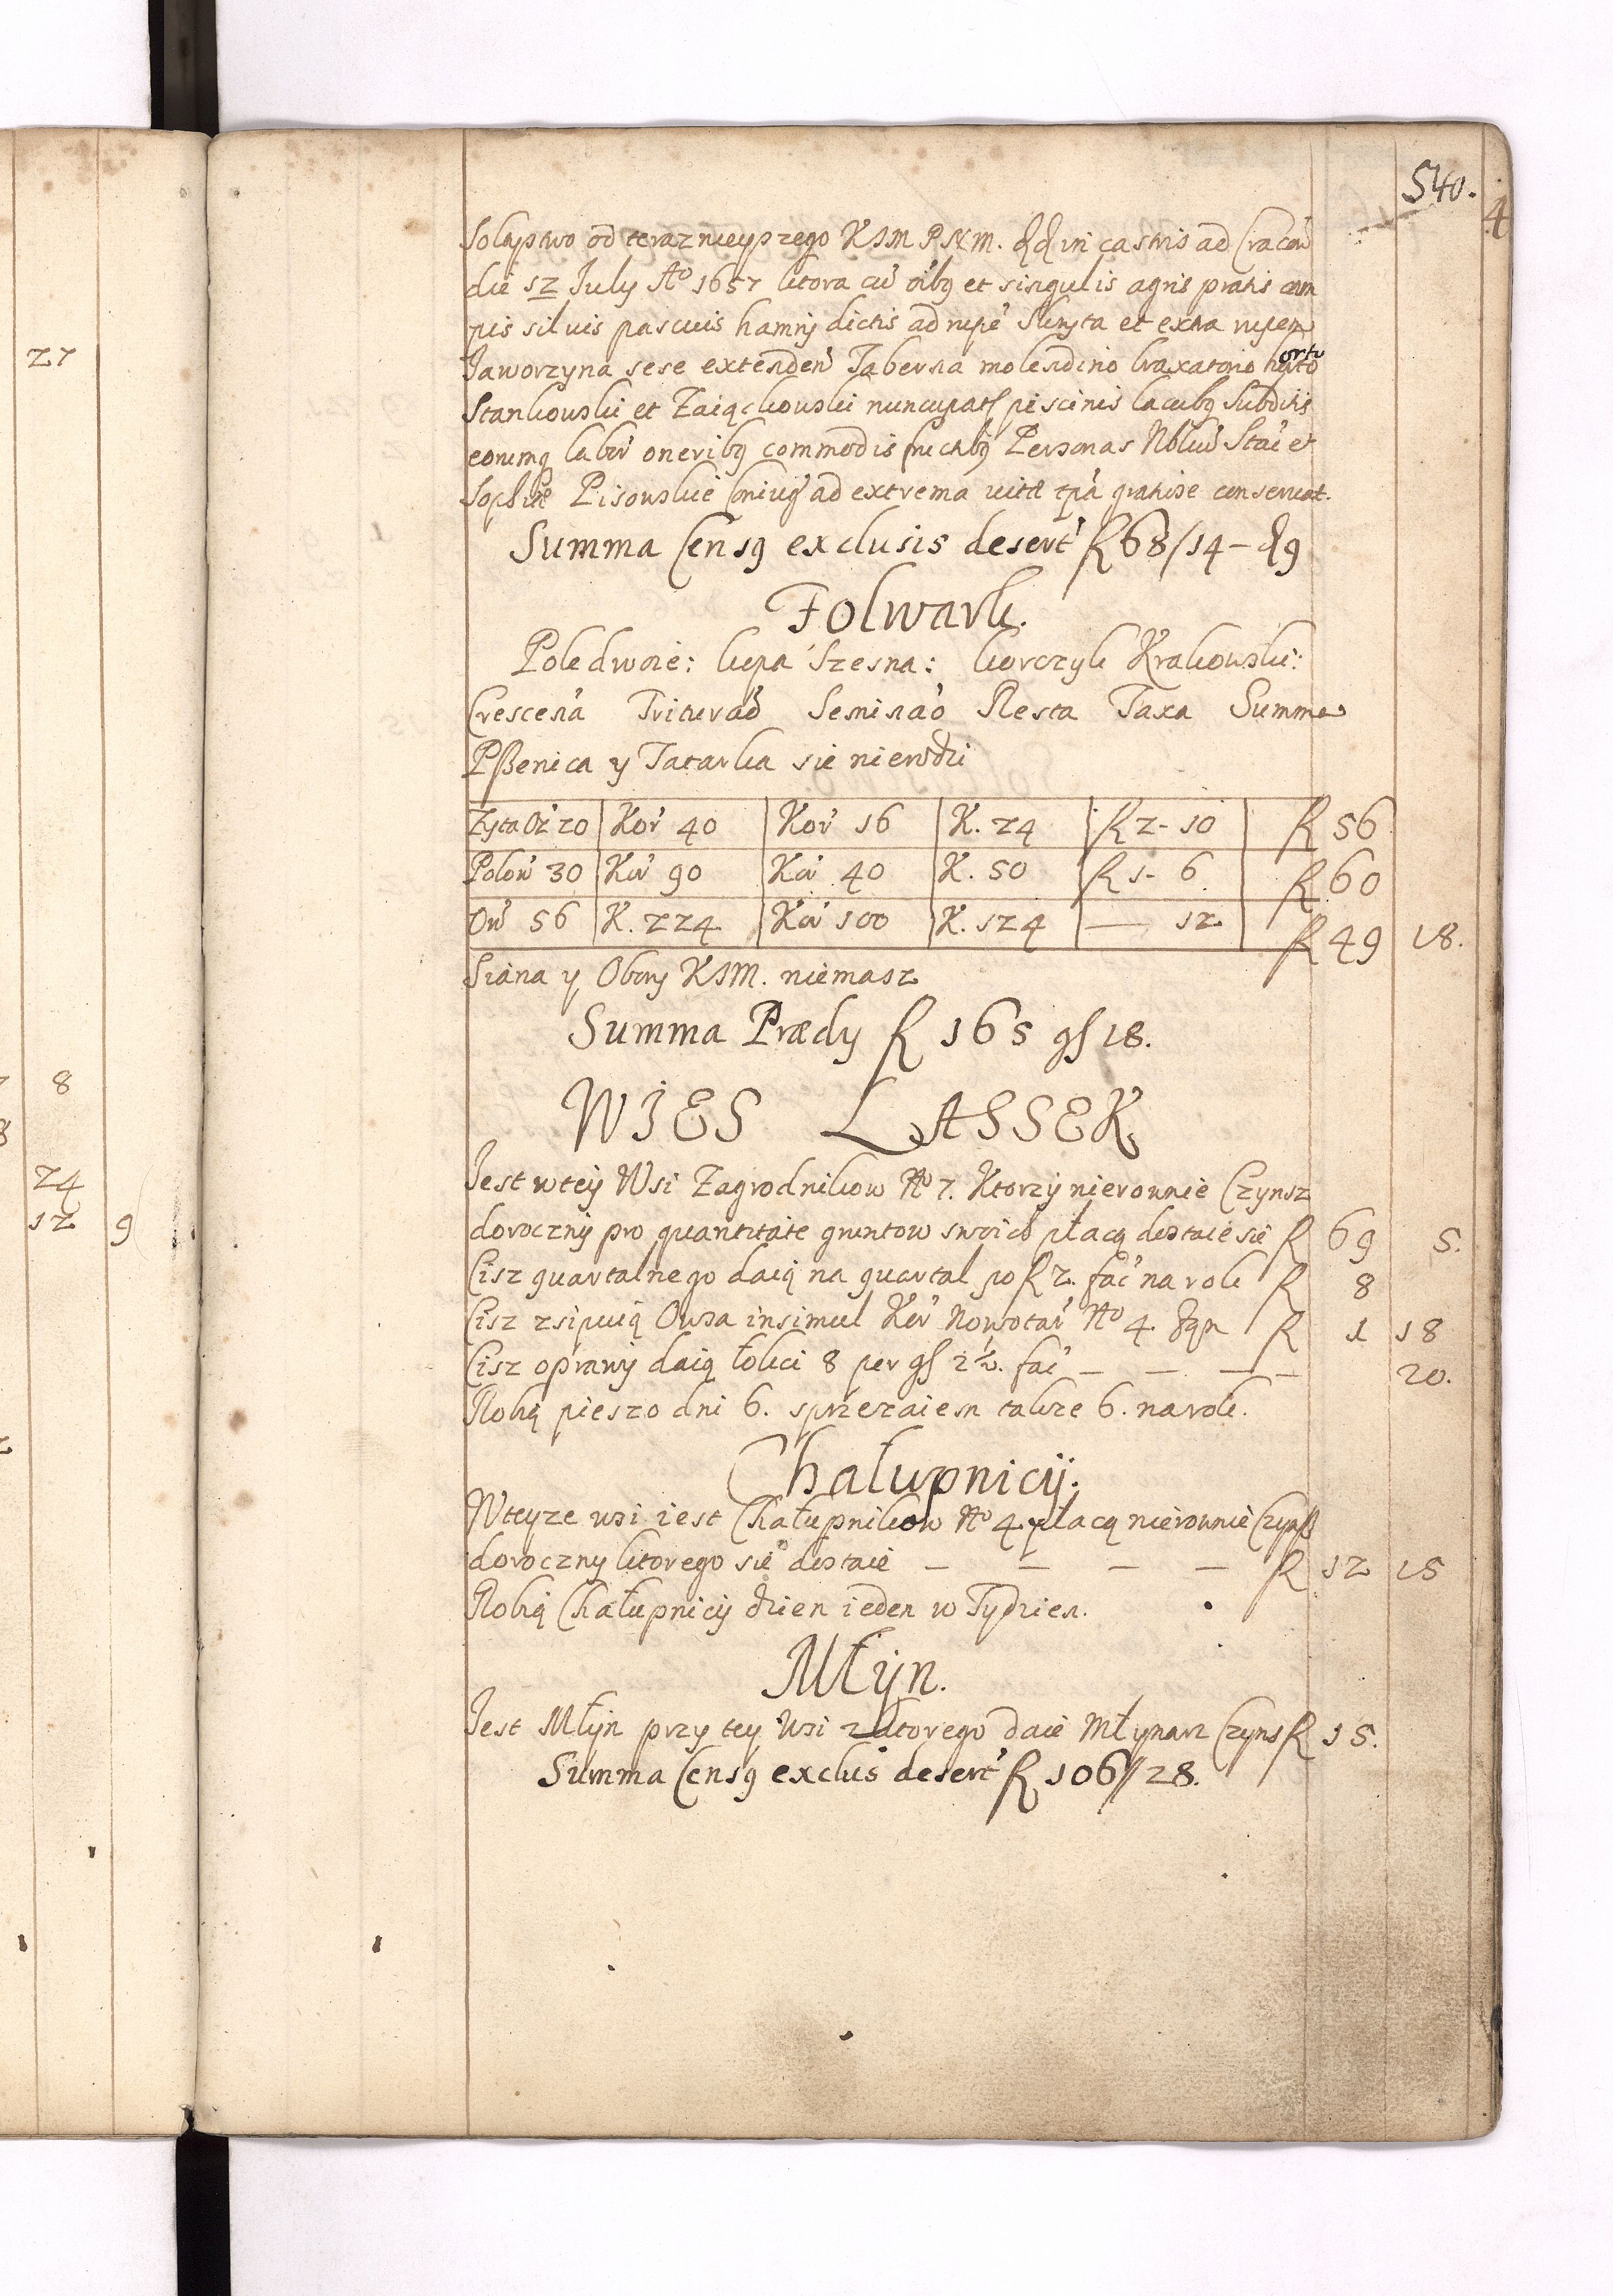 540.
4
Soleystwo od terazniejszego KJM PNM. in castris ad Cracow
die 12 July Ao 1657 ktora cu oibq et singulis agris pratis cam
pis siluis pascuis hamry dictis ad rupe et extra rupem
Jaworzyna sese extenden Taberna molendino braxatorio horto
ortu
Stankowski et Zaiączkowski nuncupat piscinis lacubq subditis
eorumq labor oneribq commodis fructibq Personas Nbliu Stai et
Sophiæ Pisowskie coniug ad extrema vitæ tpa gratiose conseruat.
Summa Censq exclusis desert R 68/14 – 9
Folwark.
Pole dwoie: kupa Szesna: korczyk Krakowski:
Crescena Triturao Seminao Resta Taxa Summa
Pszenica y Tatarka sie nierodzi
Zyta Oz 20 Kor 40 Kor 16 K. 24 R 2 – 10 R 56
Polow 30 Kor 90 Kor 40 K. 50 R 1 – 6 R 60
Ow 56 K. 224 Kor 100 K. 124 — 12 R 49 18.
Siana y Obory KJM. niemasz
Summa Prædy R 165 gs 18.
WIES LASSEK
Jest w tey Wsi Zagrodnikow No 7. Ktorzy nierownie Czynsz
doroczny pro quantitate gruntow swoich płacą dostaie sie R 69 5.
Cisz quartalnego daią na quartal po R 2. fac na rok R 8
Cisz zsipuią Owsa insimul Kor Nowotar No 4 R 1 18
Cisz oprawy daią łokci 8 per gs 2½. fac — — — — 20.
Robią pieszo dni 6. sprzezaiem takze 6. na rok.
Chałupnicy.
W teyze wsi iest Chałupnikow No 4. płacą nierownie Czynsz
doroczny ktorego sie dostaie — — — — R 12 15
Robią Chałupnicy dzien ieden w Tydzien.
Młyn.
Jest Młyn przy tey Wsi z ktorego daie Młynarz Czyns R 15.
Summa Censq exclus desert R 106//28.
27
8
24
12 9